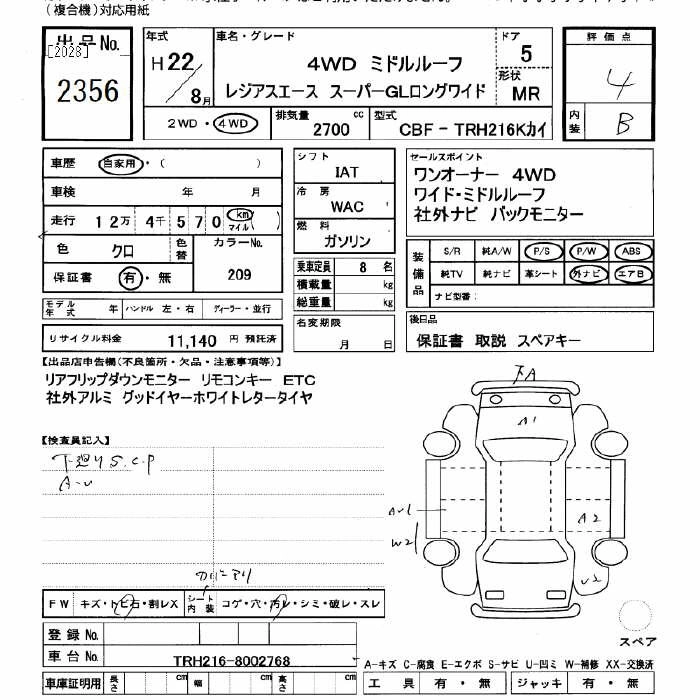 (複合機)対応用紙
出品No.
[2028]
2356
年式
H22/8月
車名・グレード
4WD ミドルルーフ
レジアスエース スーパーGLロングワイド
ドア
5
形状
MR
評価点
4
内装
B
2WD・4WD
排気量
2700 cc
型式
CBF - TRH216Kカイ
車歴 自家用・( )
車検 年 月
走行 12万 4千 570 km マイル ( )
色 クロ
色替
カラーNo.
209
保証書 有・無
シフト
IAT
冷房
WAC
燃料
ガソリン
乗車定員 8 名
積載量 kg
総重量 kg
セールスポイント
ワンオーナー 4WD
ワイド・ミドルルーフ
社外ナビ バックモニター
装備品
S/R 純A/W P/S P/W ABS
純TV 純ナビ 革シート 外ナビ エアB
ナビ型番:
モデル年式 年 ハンドル 左・右 ディーラー・並行
リサイクル料金 11,140 円 預託済
名変期限
月 日
後日品
保証書 取説 スペアキー
【出品店申告欄(不良箇所・欠品・注意事項等)】
リアフリップダウンモニター リモコンキー ETC
社外アルミ グッドイヤーホワイトレタータイヤ
【検査員記入】
下廻りS.C.P
A-U
下A
A1
A-U1
W2
A2
U2
FW キズ・トビ石・割レX
シート内装 コゲ・穴・汚レ・シミ・破レ・スレ
登録No.
車台No. TRH216-8002768
車庫証明用 長さ cm 幅 cm 高さ cm
スペア
A-キズ C-腐食 E-エクボ S-サビ U-凹ミ W-補修 XX-交換済
工具 有・無 ジャッキ 有・無